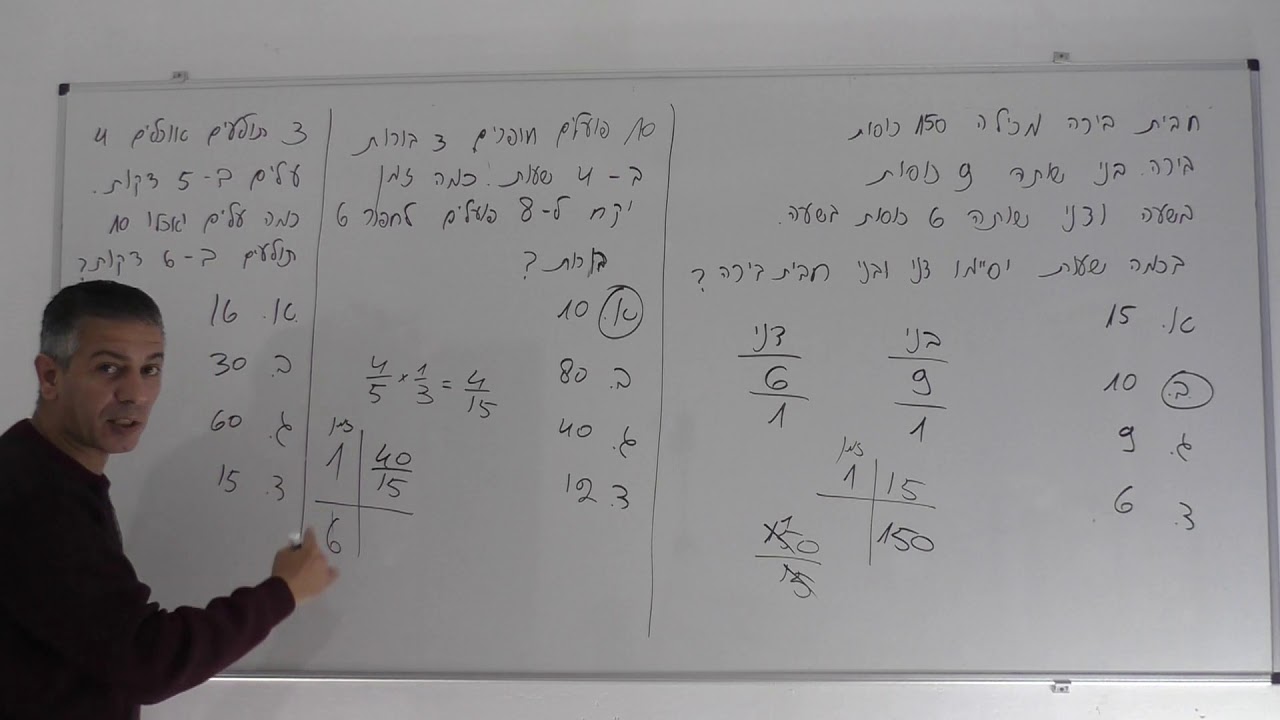 חבית בירה מכילה 150 כוסות
בירה. בני שותה 9 כוסות
בשעה ודני שותה 6 כוסות בשעה.
בכמה שעות יסיימו דני ובני חבית בירה?
א. 15
ב. 10
ג. 9
ד. 6
בני דני
9 6
1 1
זמן
1 15
150
150
15
10 פועלים חופרים 3 בורות
ב-4 שעות. כמה זמן
יקח ל-8 פועלים לחפור 6
בורות?
א. 10
ב. 80
ג. 40
ד. 12
3 תולעים אוכלים 4
עלים ב-5 דקות.
כמה עלים יאכלו 10
תולעים ב-6 דקות?
א. 16
ב. 30
ג. 60
ד. 15
4/5 × 1/3 = 4/15
זמן
1 40/15
6